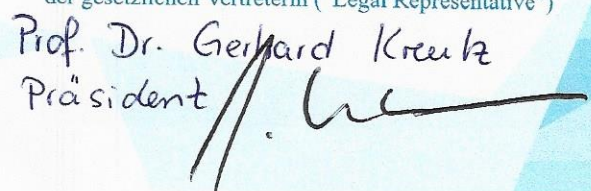 der gesetzlichen Vertreterin ("Legal Representative")
Prof. Dr. Gerhard Kreutz
Präsident